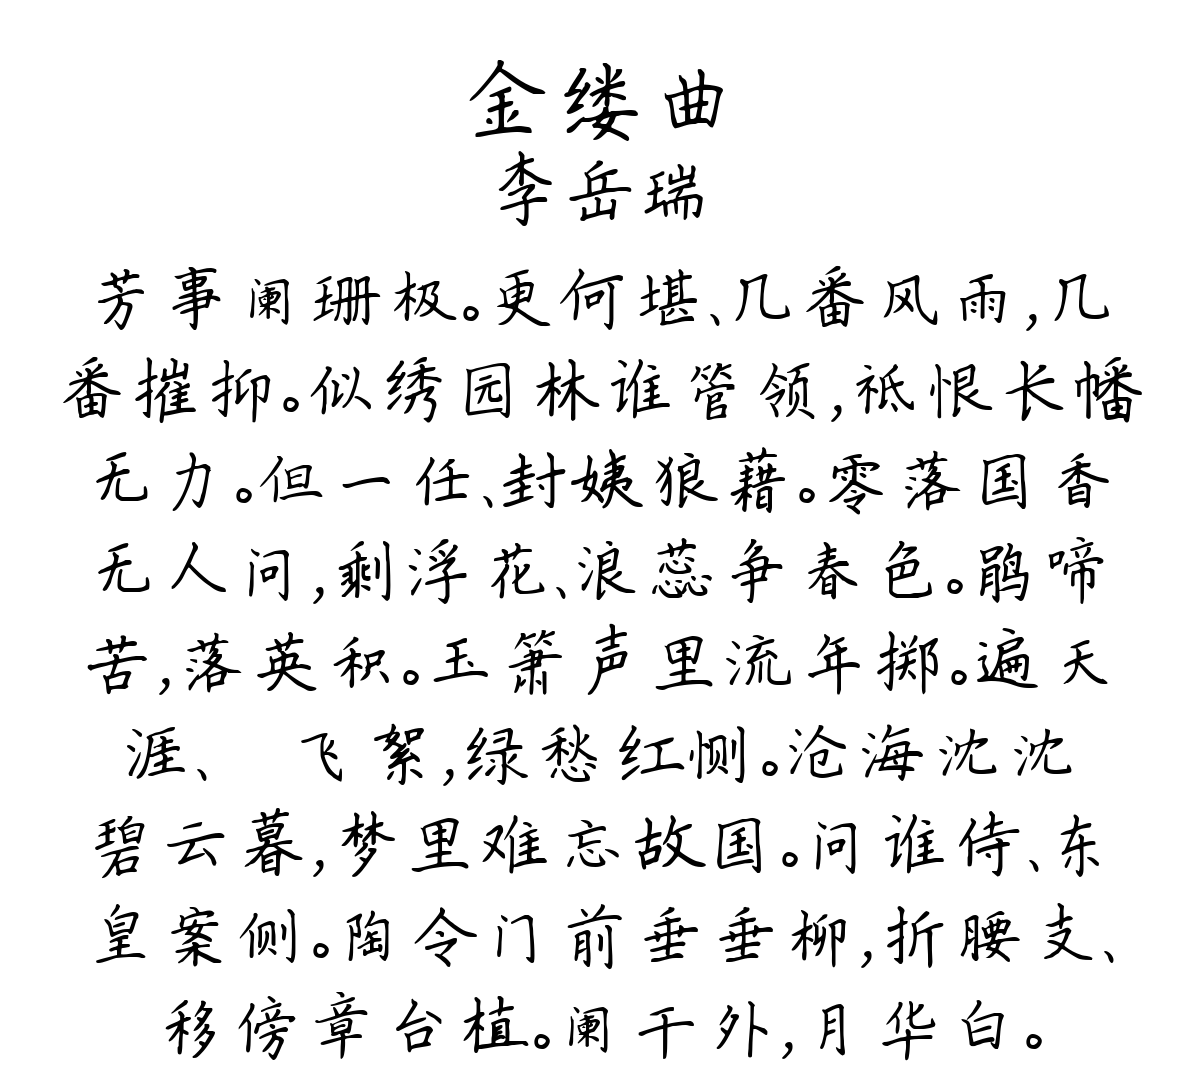 金缕曲
李岳瑞
芳事阑珊极。更何堪、几番风雨,几
番摧抑。似绣园林谁管领,祗恨长幡
无力。但一任、封姨狼藉。零落国香
无人问,剩浮花、浪蕊争春色。鹃啼
苦,落英积。玉箫声里流年掷。遍天
涯、 飞絮,绿愁红恻。沧海沈沈
碧云暮,梦里难忘故国。问谁侍、东
皇案侧。陶令门前垂垂柳,折腰支、
移傍章台植。阑干外,月华白。